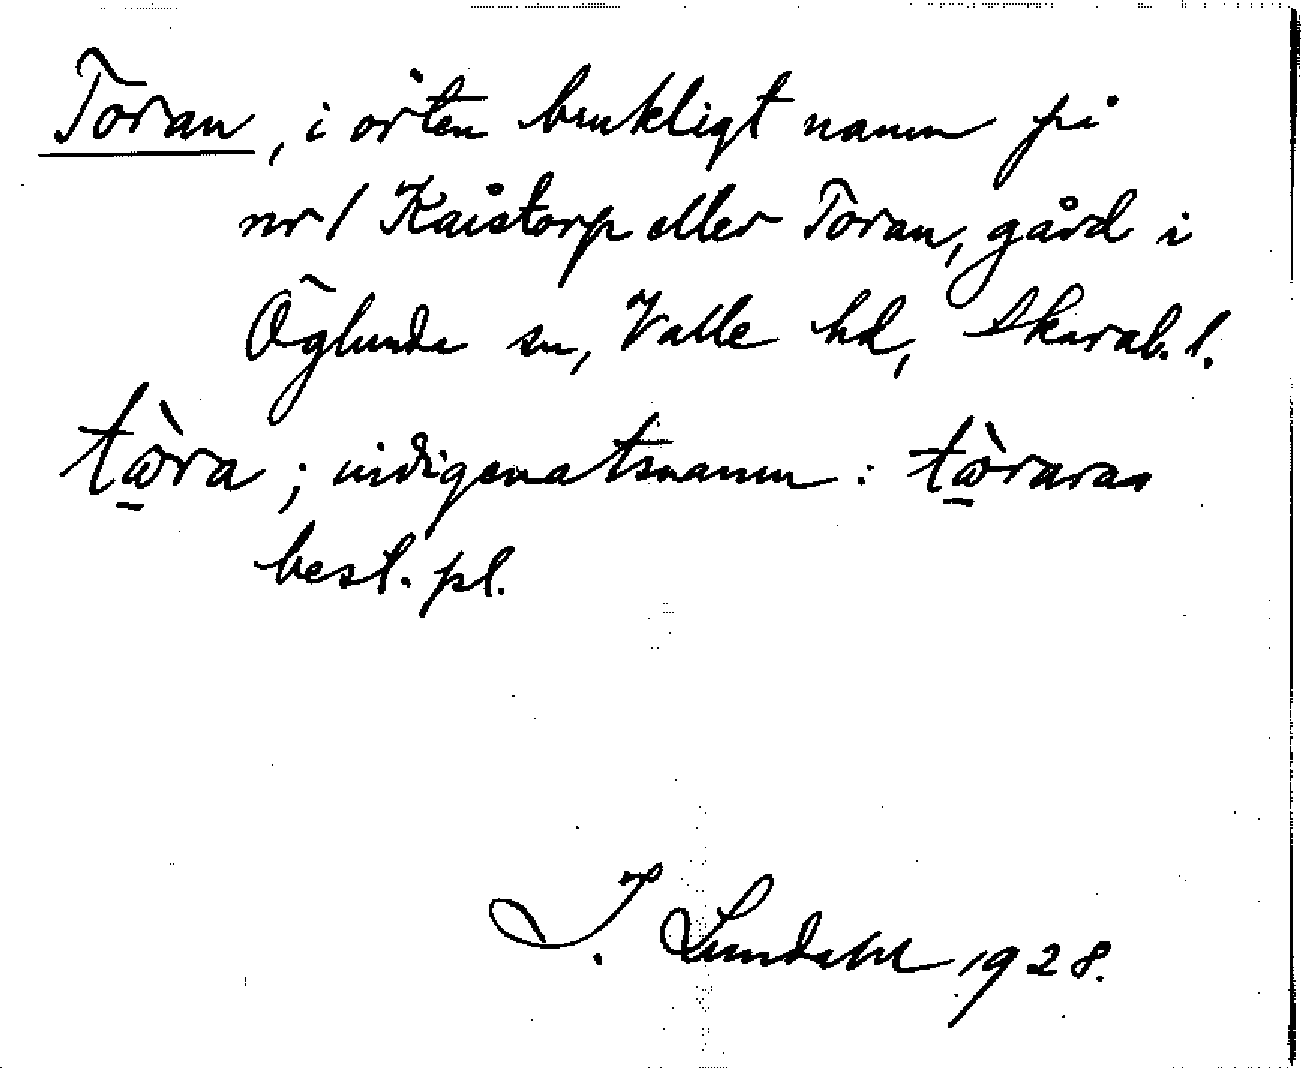 Toran, i orten brukligt namn på
nr 1 Kaistorp eller Toran, gård i
Öglunda sn, Valle hd, Skarab. l.
tὼra ; indigenatsnamn : tὼrara
best. pl.
I. Lundahl 1928.